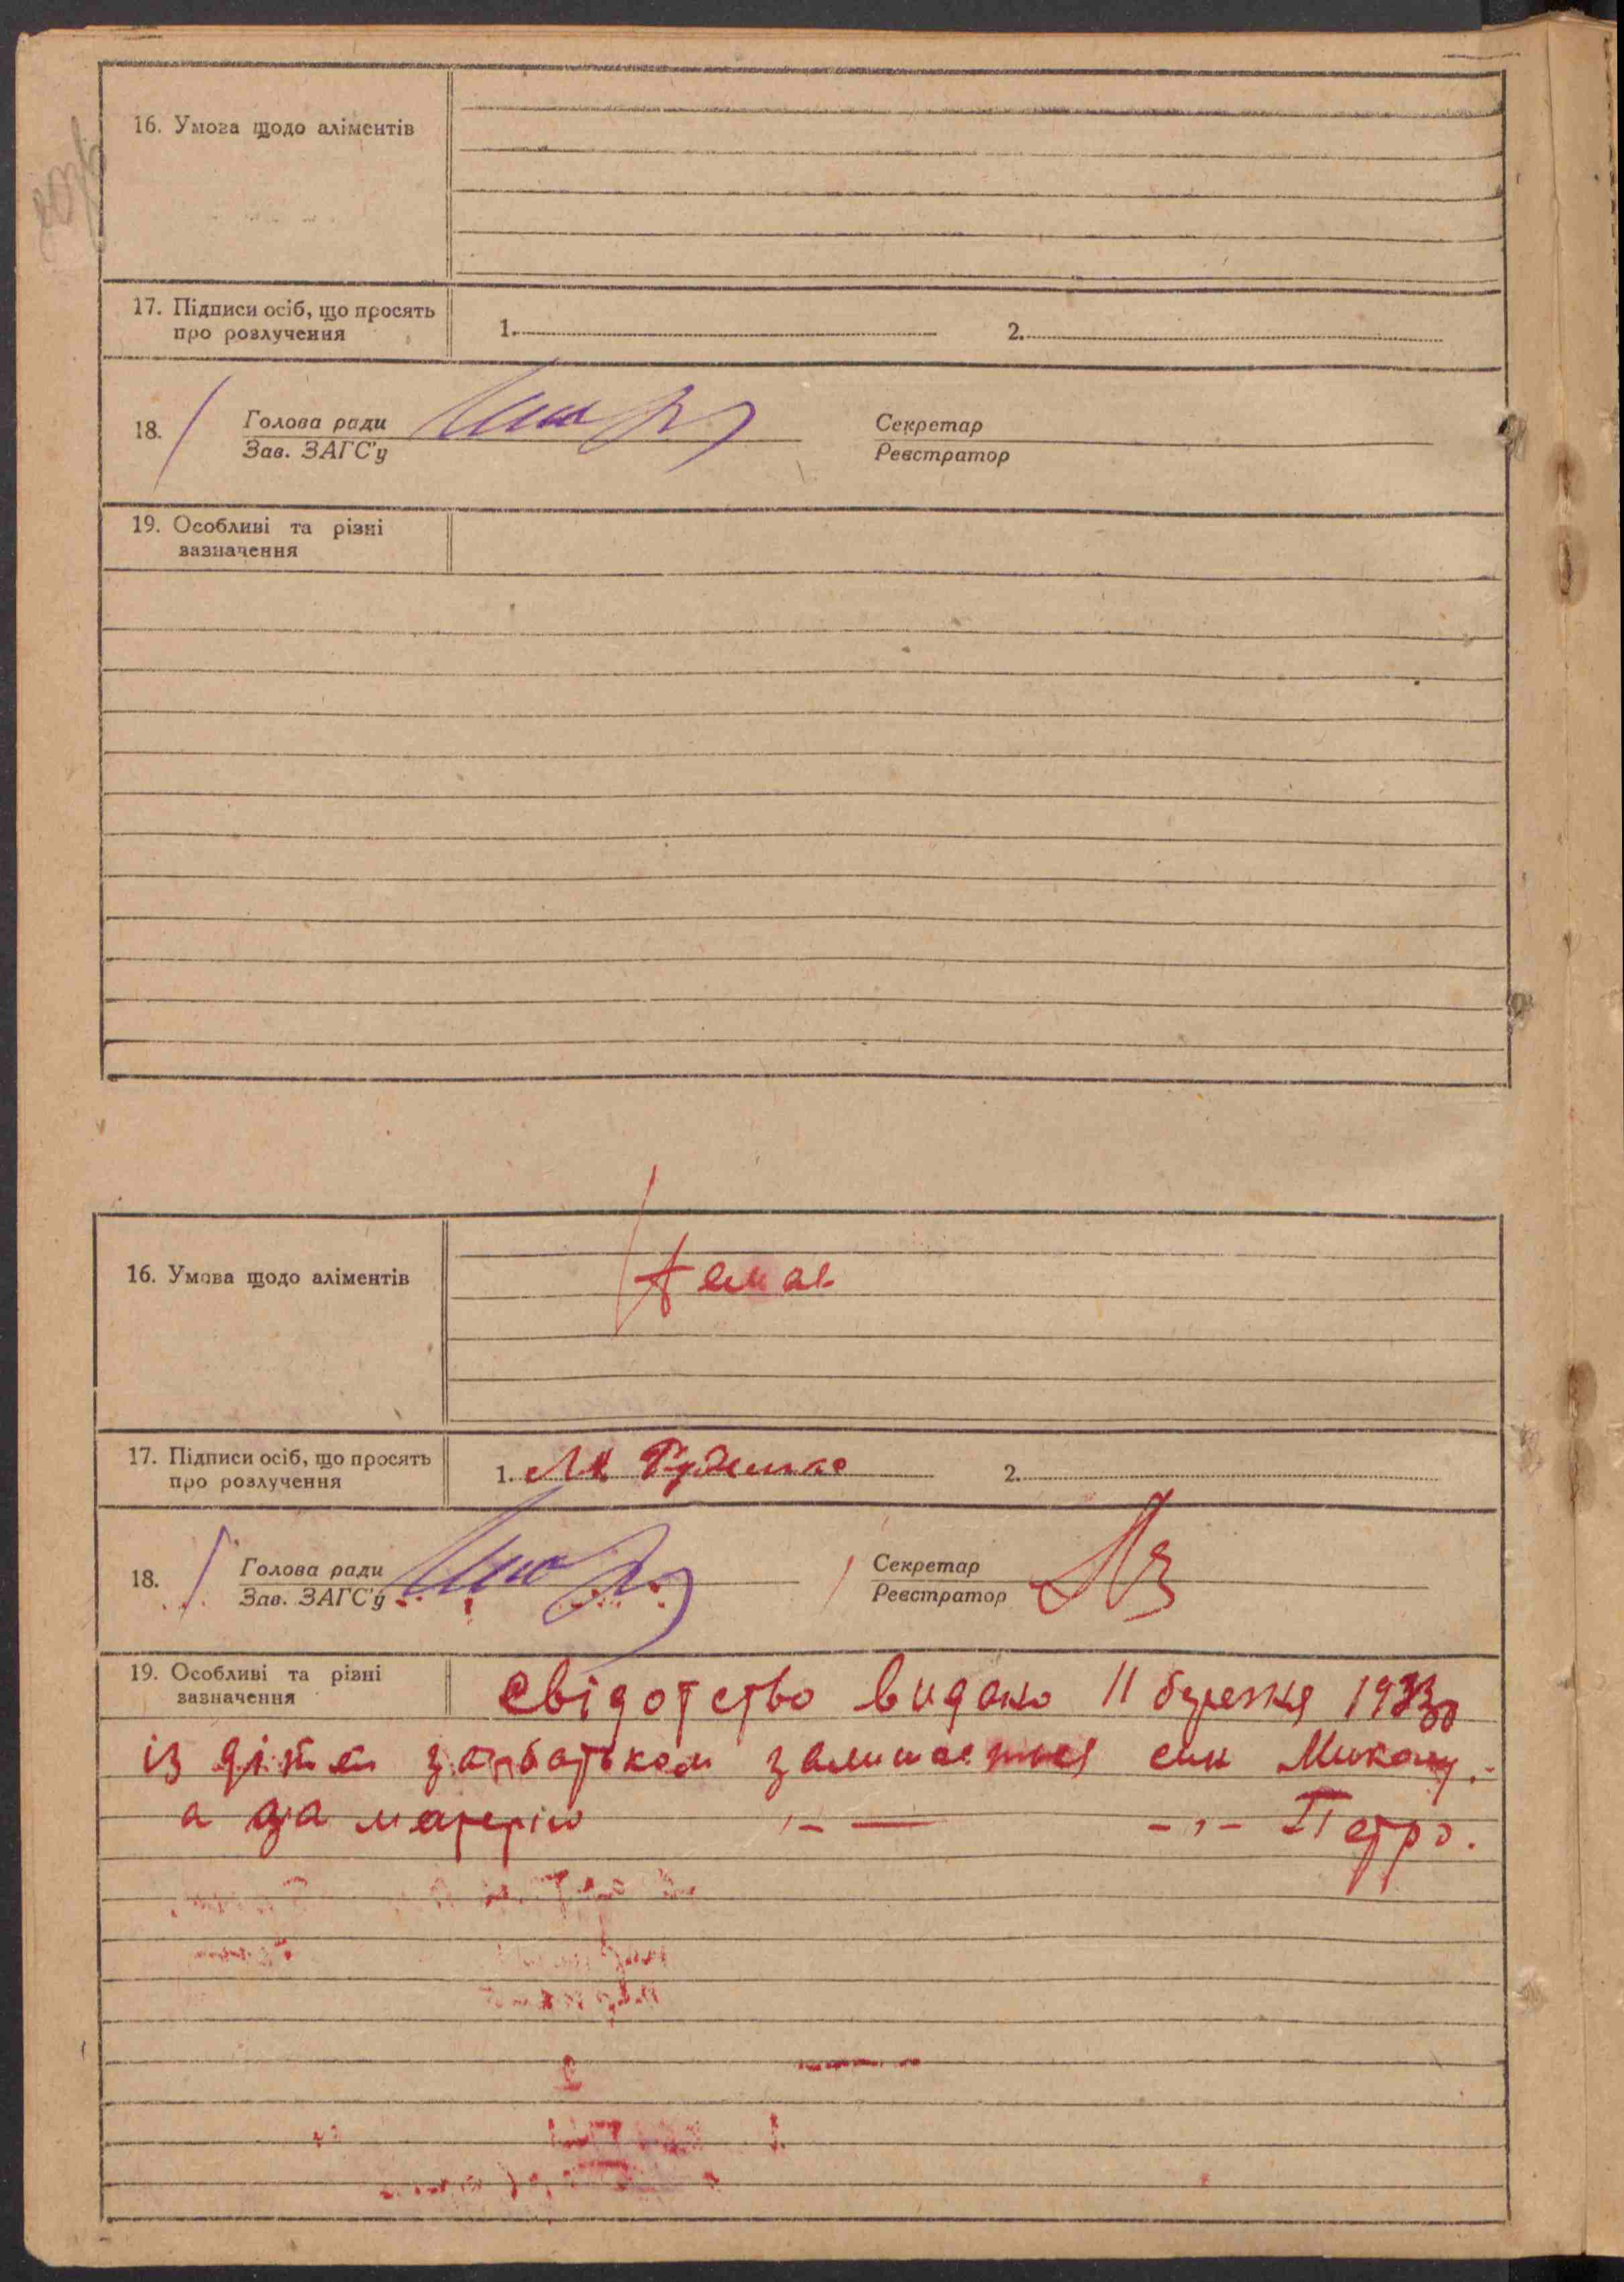 16. Умова щодо аліментів
17. Підписи осіб, що просять
про розлучення
1.
2.
18.
Голова ради
Зав. ЗАГС'у
Секретар
Реєстратор
19. Особливі та різні
зазначення
16. Умова щодо аліментів
Немає
17. Підписи осіб, що просять
про розлучення
1. М Руденко
2.
18.
Голова ради
Зав. ЗАГС'у
Секретар
Реєстратор
19. Особливі та різні
зазначення
свідотство видано 11 березня
із дітей за батьком залишається син
а за матерію -,- — -,- Петро.